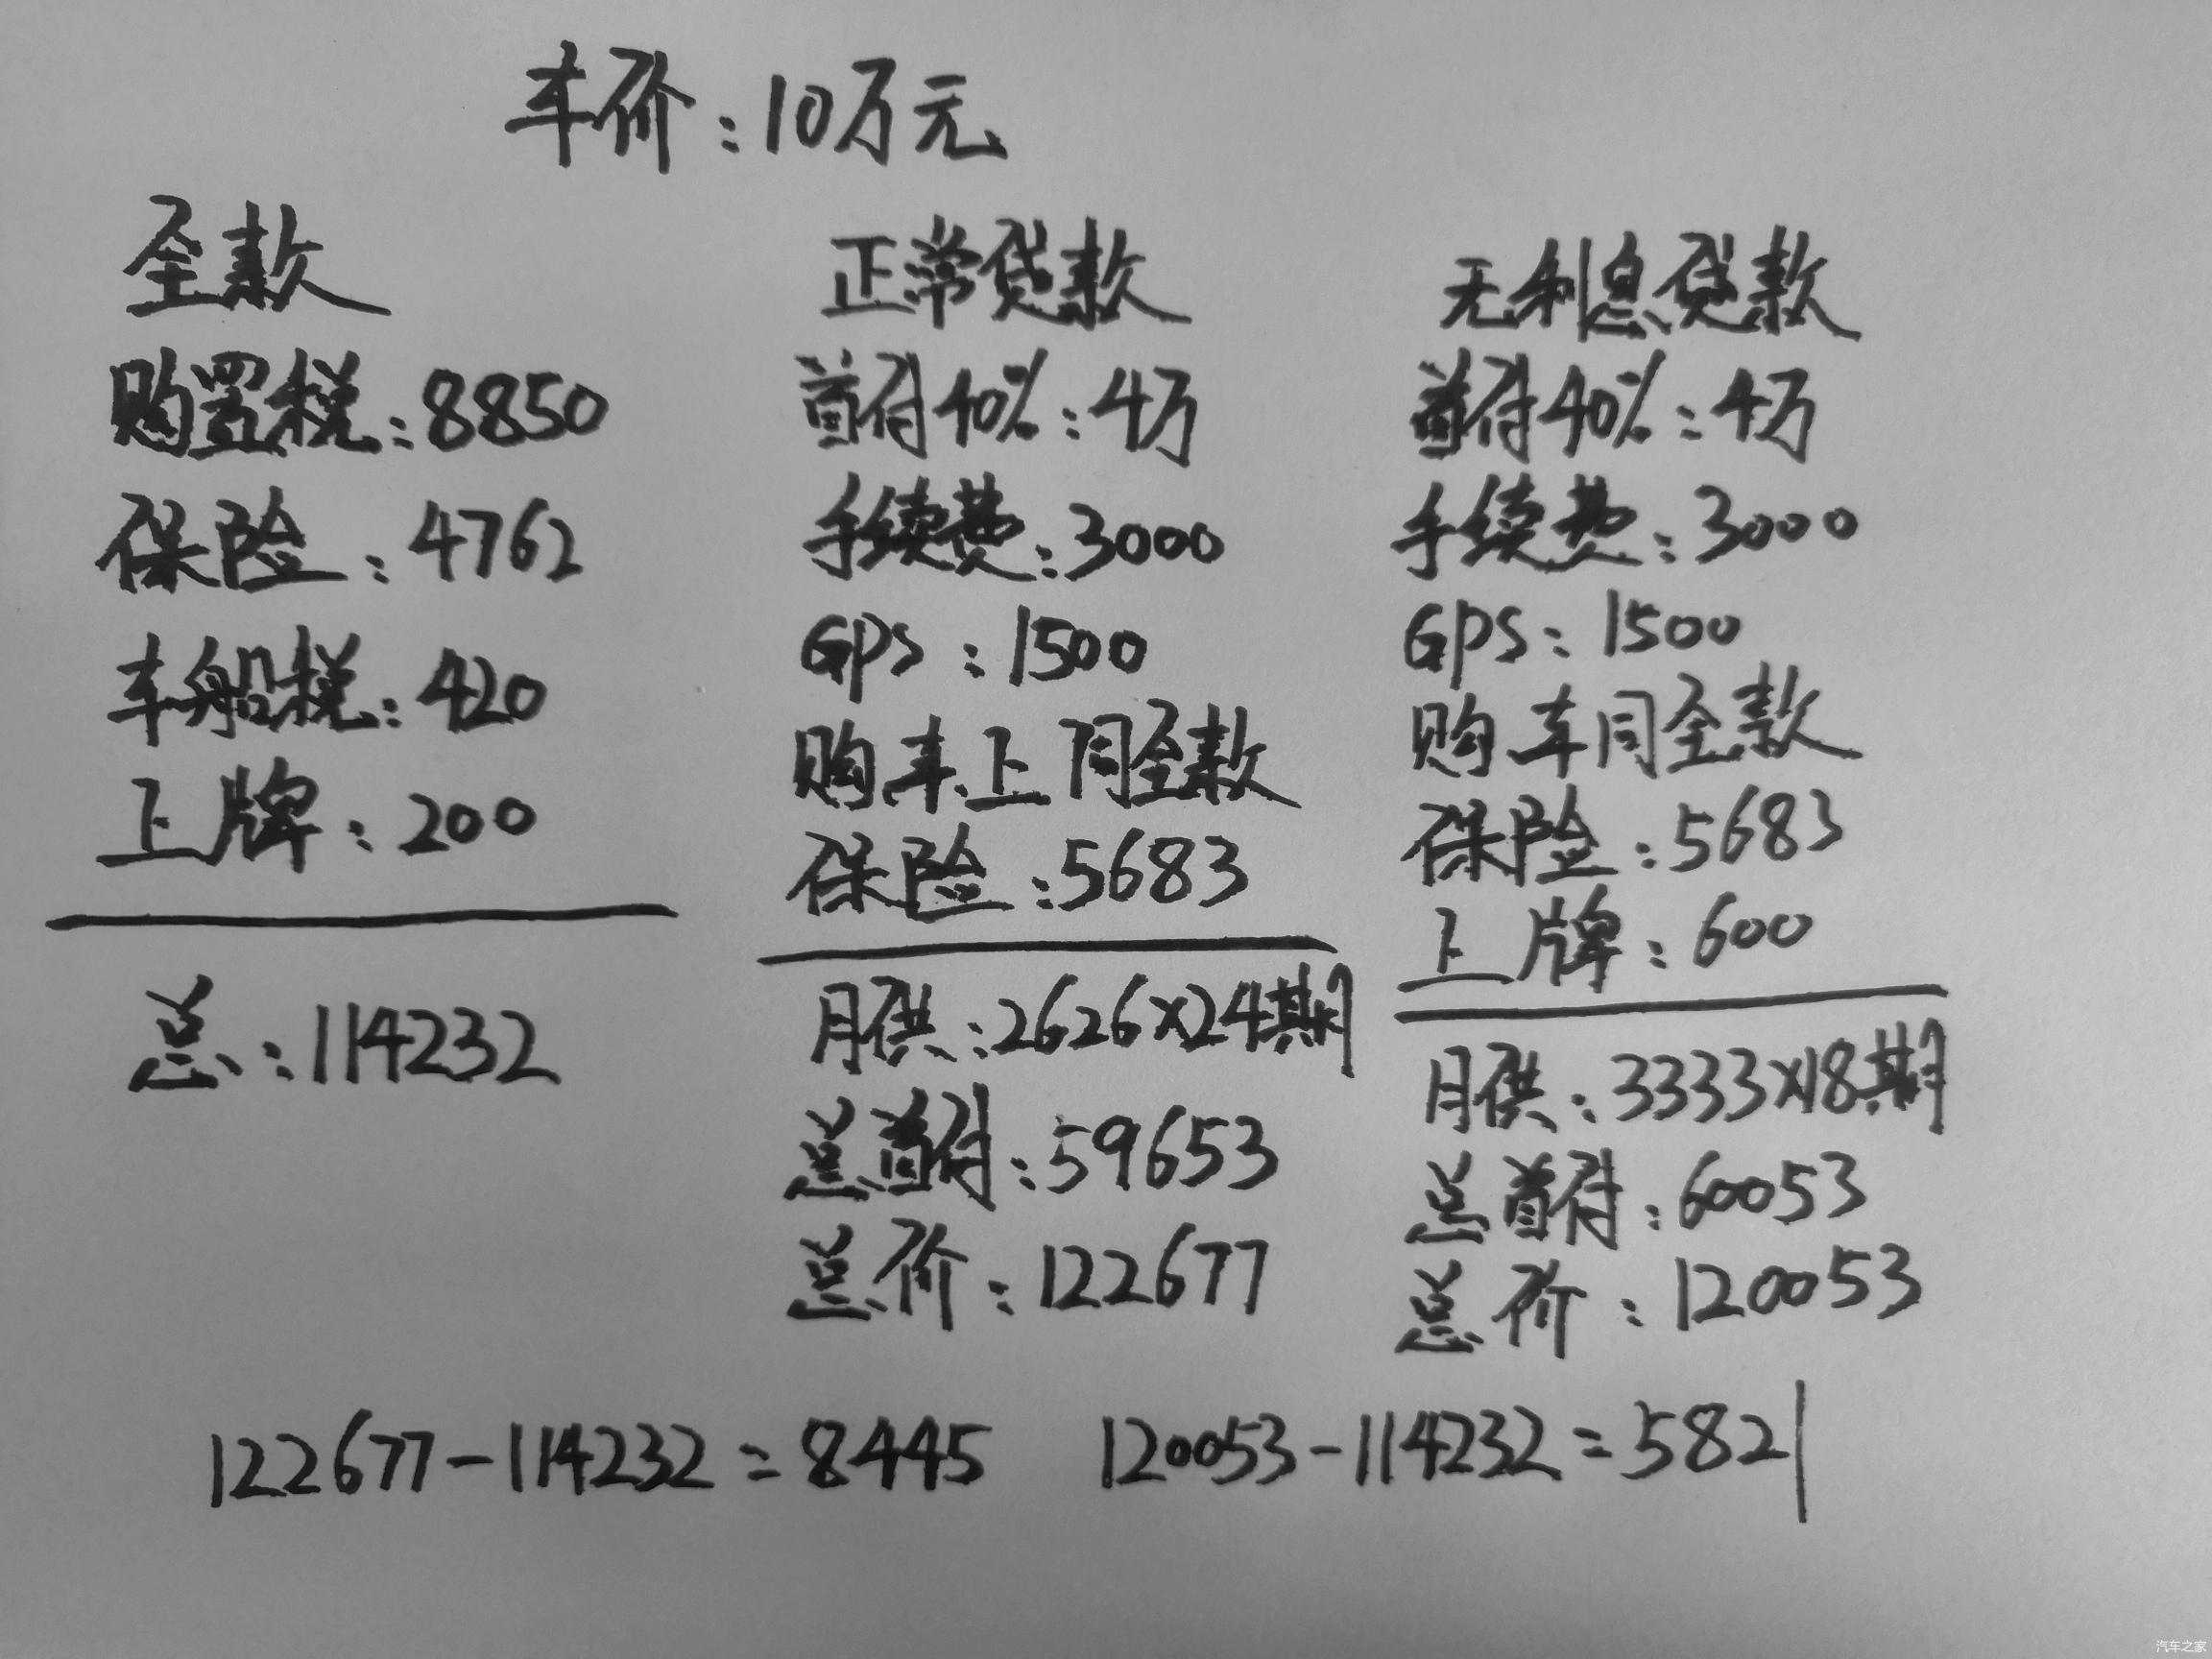 车价:10万元
全款
购置税:8850
保险:4762
车船税:420
上牌:200
总:114232
正常贷款
首付40%:4万
手续费:3000
GPS:1500
购车上同全款
保险:5683
月供:2626×24期
总首付:59653
总价:122677
无利息贷款
首付40%:4万
手续费:3000
GPS:1500
购车同全款
保险:5683
上牌:600
月供:3333×18期
总首付:60053
总价:120053
122677-114232=8445
120053-114232=5821
汽车之家